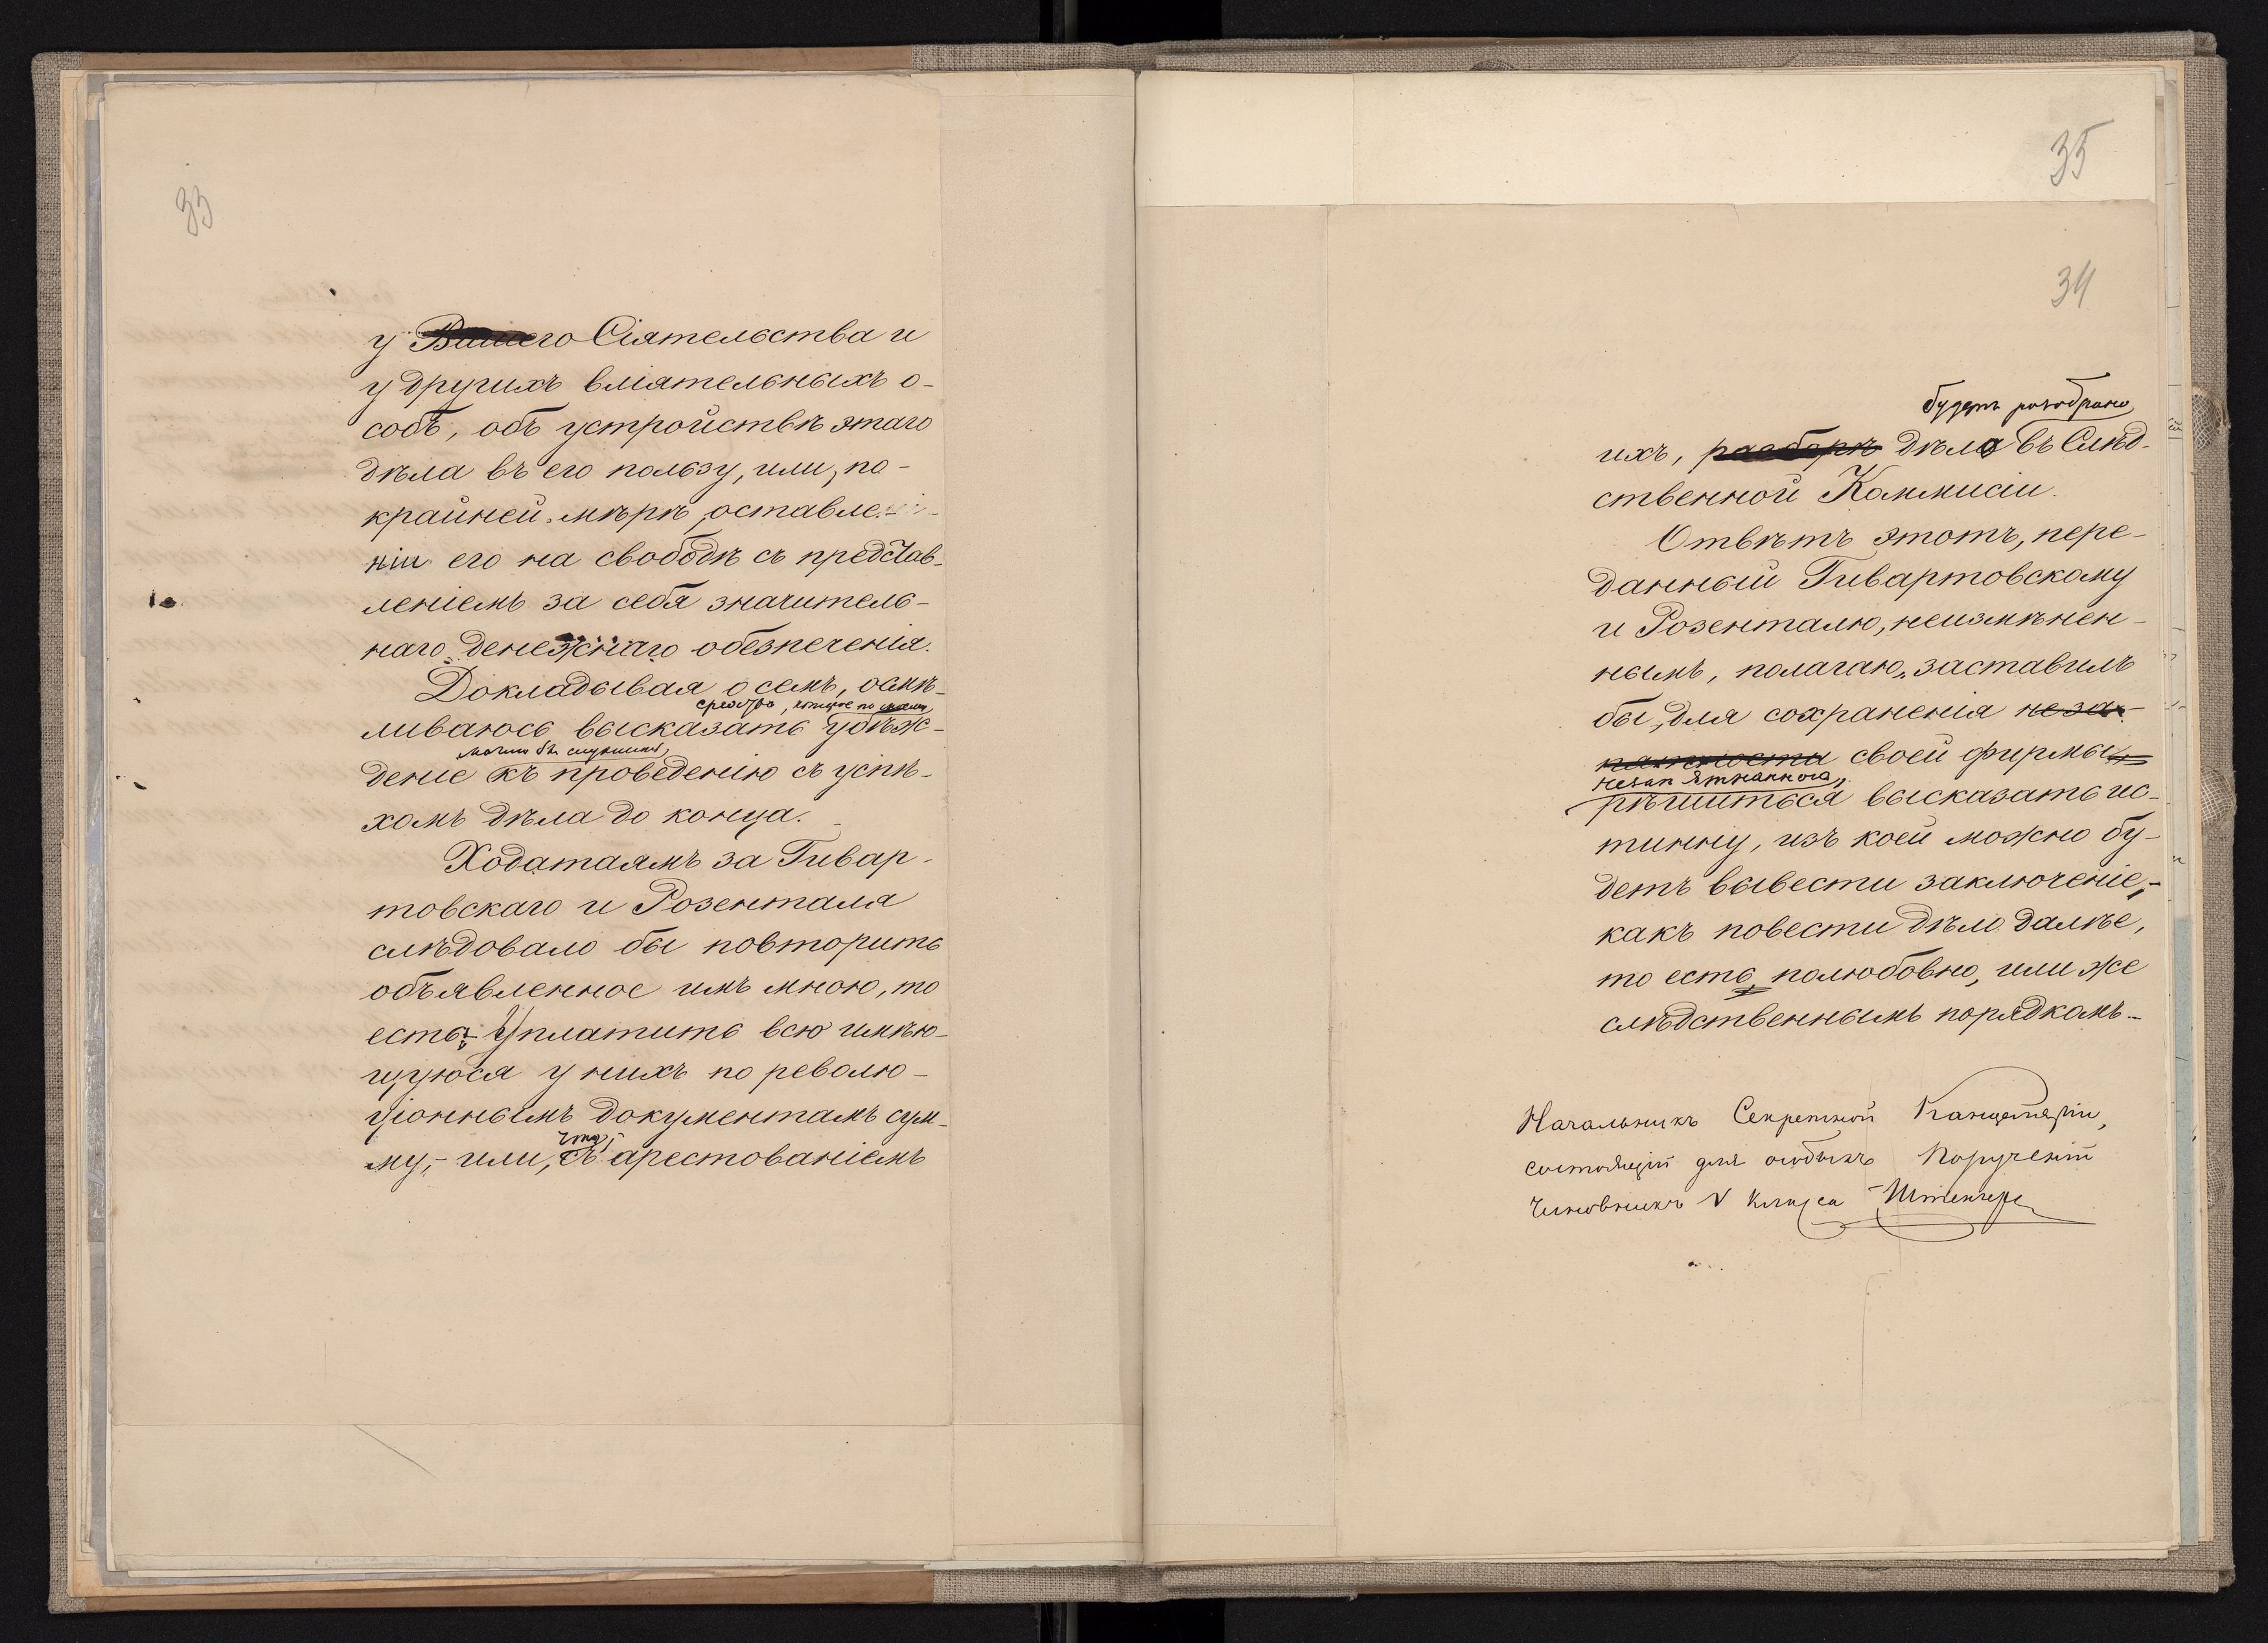 33
у Вашего Сіятельства и
у другихъ вліятельныхъ о-
собъ, объ устройствѣ этаго
дѣла въ его пользу, или, по-
крайней мѣрѣ, оставле-
ніи его на свободѣ съ представ-
леніемъ за себя значитель-
наго денежнаго обезпеченія.
Докладывая о семъ, осмѣ-
средство, которое по моему
ливаюсь высказать убѣж-
могло бы служить
деніе къ проведенію съ успѣ-
хомъ дѣла до конца.
Ходатаямъ за Гивар-
товскаго и Розенталя
слѣдовало бы повторить
объявленное имъ мною, то
есть: Уплатить всю имѣю-
щуюся у нихъ по револю-
ціоннымъ документамъ сум-
что,
му,- или, съ арестованіемъ
35
34
будетъ разобрано
ихъ, разборъ дѣло въ Слѣд-
ственной Коммисіи.
Отвѣтъ этотъ, пере-
данный Гивартовскому
и Розенталю, неизмѣнен-
нымъ, полагаю, заставилъ
бы, для сохраненія неза-
пятнанности своей фирмы
незапятнанною,
рѣшиться высказать ис-
тинну, изъ коей можно бу-
детъ вывести заключеніе,-
какъ повести дѣло далѣе,
то есть, полюбовно, или же
слѣдственнымъ порядкомъ.-
Начальникъ Секретной Канцеляріи,
состоящій для особыхъ порученій
Чиновникъ V класса Штенгеръ